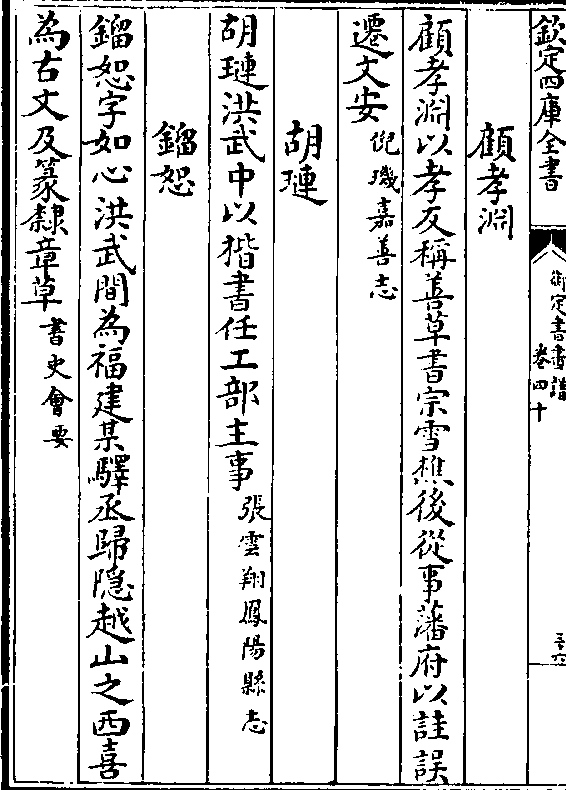 欽定四庫全書
御定書畫譜
卷四十
三六
顧孝淵
顧孝淵以孝友稱善草書宗雪樵後從事藩府以詿誤
遷文安倪璣嘉善志
胡璉
胡璉洪武中以楷書任工部主事張雲翔鳳陽縣志
鎦恕
鎦恕字如心洪武間為福建某驛丞歸隠越山之西喜
為古文及篆隸章草書史會要